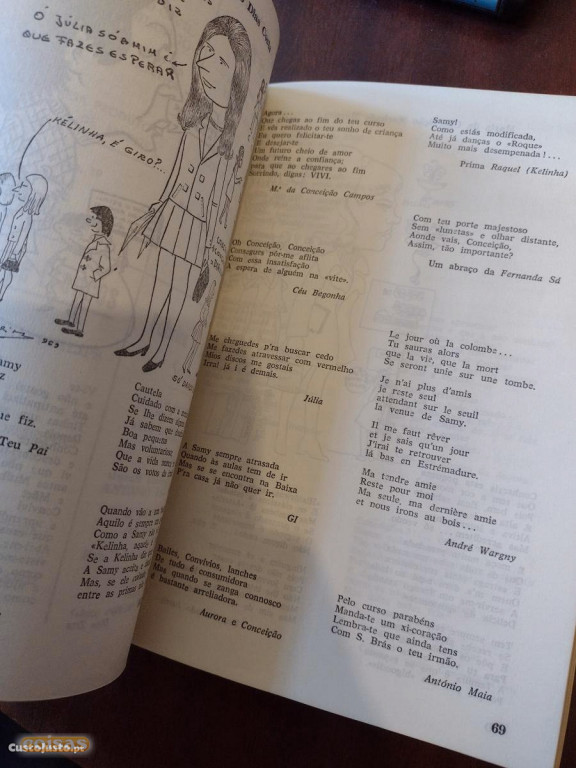 DIZ
Ó JÚLIA SÓ A MIM É
QUE FAZES ESPERAR
KELINHA, É GIRO?...
Dias
amy
z
ue fiz.
Teu Pai
Cautela
Cuidado com a
Se lhe dizem
Já sabem que
Boa pequena
Mas voluntariosa,
Que a vida
São os votos de
Quando vão a um
Aquilo é sempre
Como a Samy não
«Kelinha,
Se a Kelinha
A Samy
Mas, se ele
entre as primas
Agora...
Que chegas ao fim do teu curso
E vês realizado o teu sonho de criança
Eu quero felicitar-te
E desejar-te
Um futuro cheio de amor
Onde reine a confiança;
para que ao chegares ao fim
Sorrindo, digas: VIVI.
M.ª da Conceição Campos
Oh Conceição, Conceição
Consegues pôr-me aflita
Com essa insatisfação
À espera de alguém na «vite».
Céu Begonha
Me cheguedes p'ra buscar cedo
Me fazedes atravessar com vermelho
Mios discos me gostais
Irra! já i é demais.
Júlia
A Samy sempre atrasada
Quando às aulas tem de ir
Mas se se encontra na Baixa
P'ra casa já não quer ir.
GI
Bailes, Convívios, lanches
De tudo é consumidora
Mas quando se zanga connosco
É bastante arreliadora.
Aurora e Conceição
Samy!
Como estás modificada,
Até já danças o «Roque»
Muito mais desempenada!...
Prima Raquel (Kelinha)
Com teu porte majestoso
Sem «lunetas» e olhar distante,
Aonde vais, Conceição,
Assim, tão importante?
Um abraço da Fernanda Sá
Le jour où la colombe...
Tu sauras alors
que la vie, que la mort
Se seront unie sur une tombe.
Je n'ai plus d'amis
je reste seul
attendant sur le seuil
la venue de Samy.
Il me faut rêver
et je sais qu'un jour
J'irai te retrouver
là bas en Estrémadure.
Ma tendre amie
Reste pour moi
Ma seule, ma dernière amie
et nous irons au bois...
André Wargny
Pelo curso parabéns
Manda-te um xi-coração
Lembra-te que ainda tens
Com S. Brás o teu irmão.
António Maia
69
coisas
CustoJusto.pt